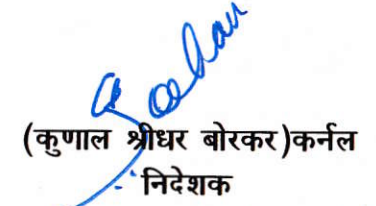 (कुणाल श्रीधर बोरकर)कर्नल
निदेशक